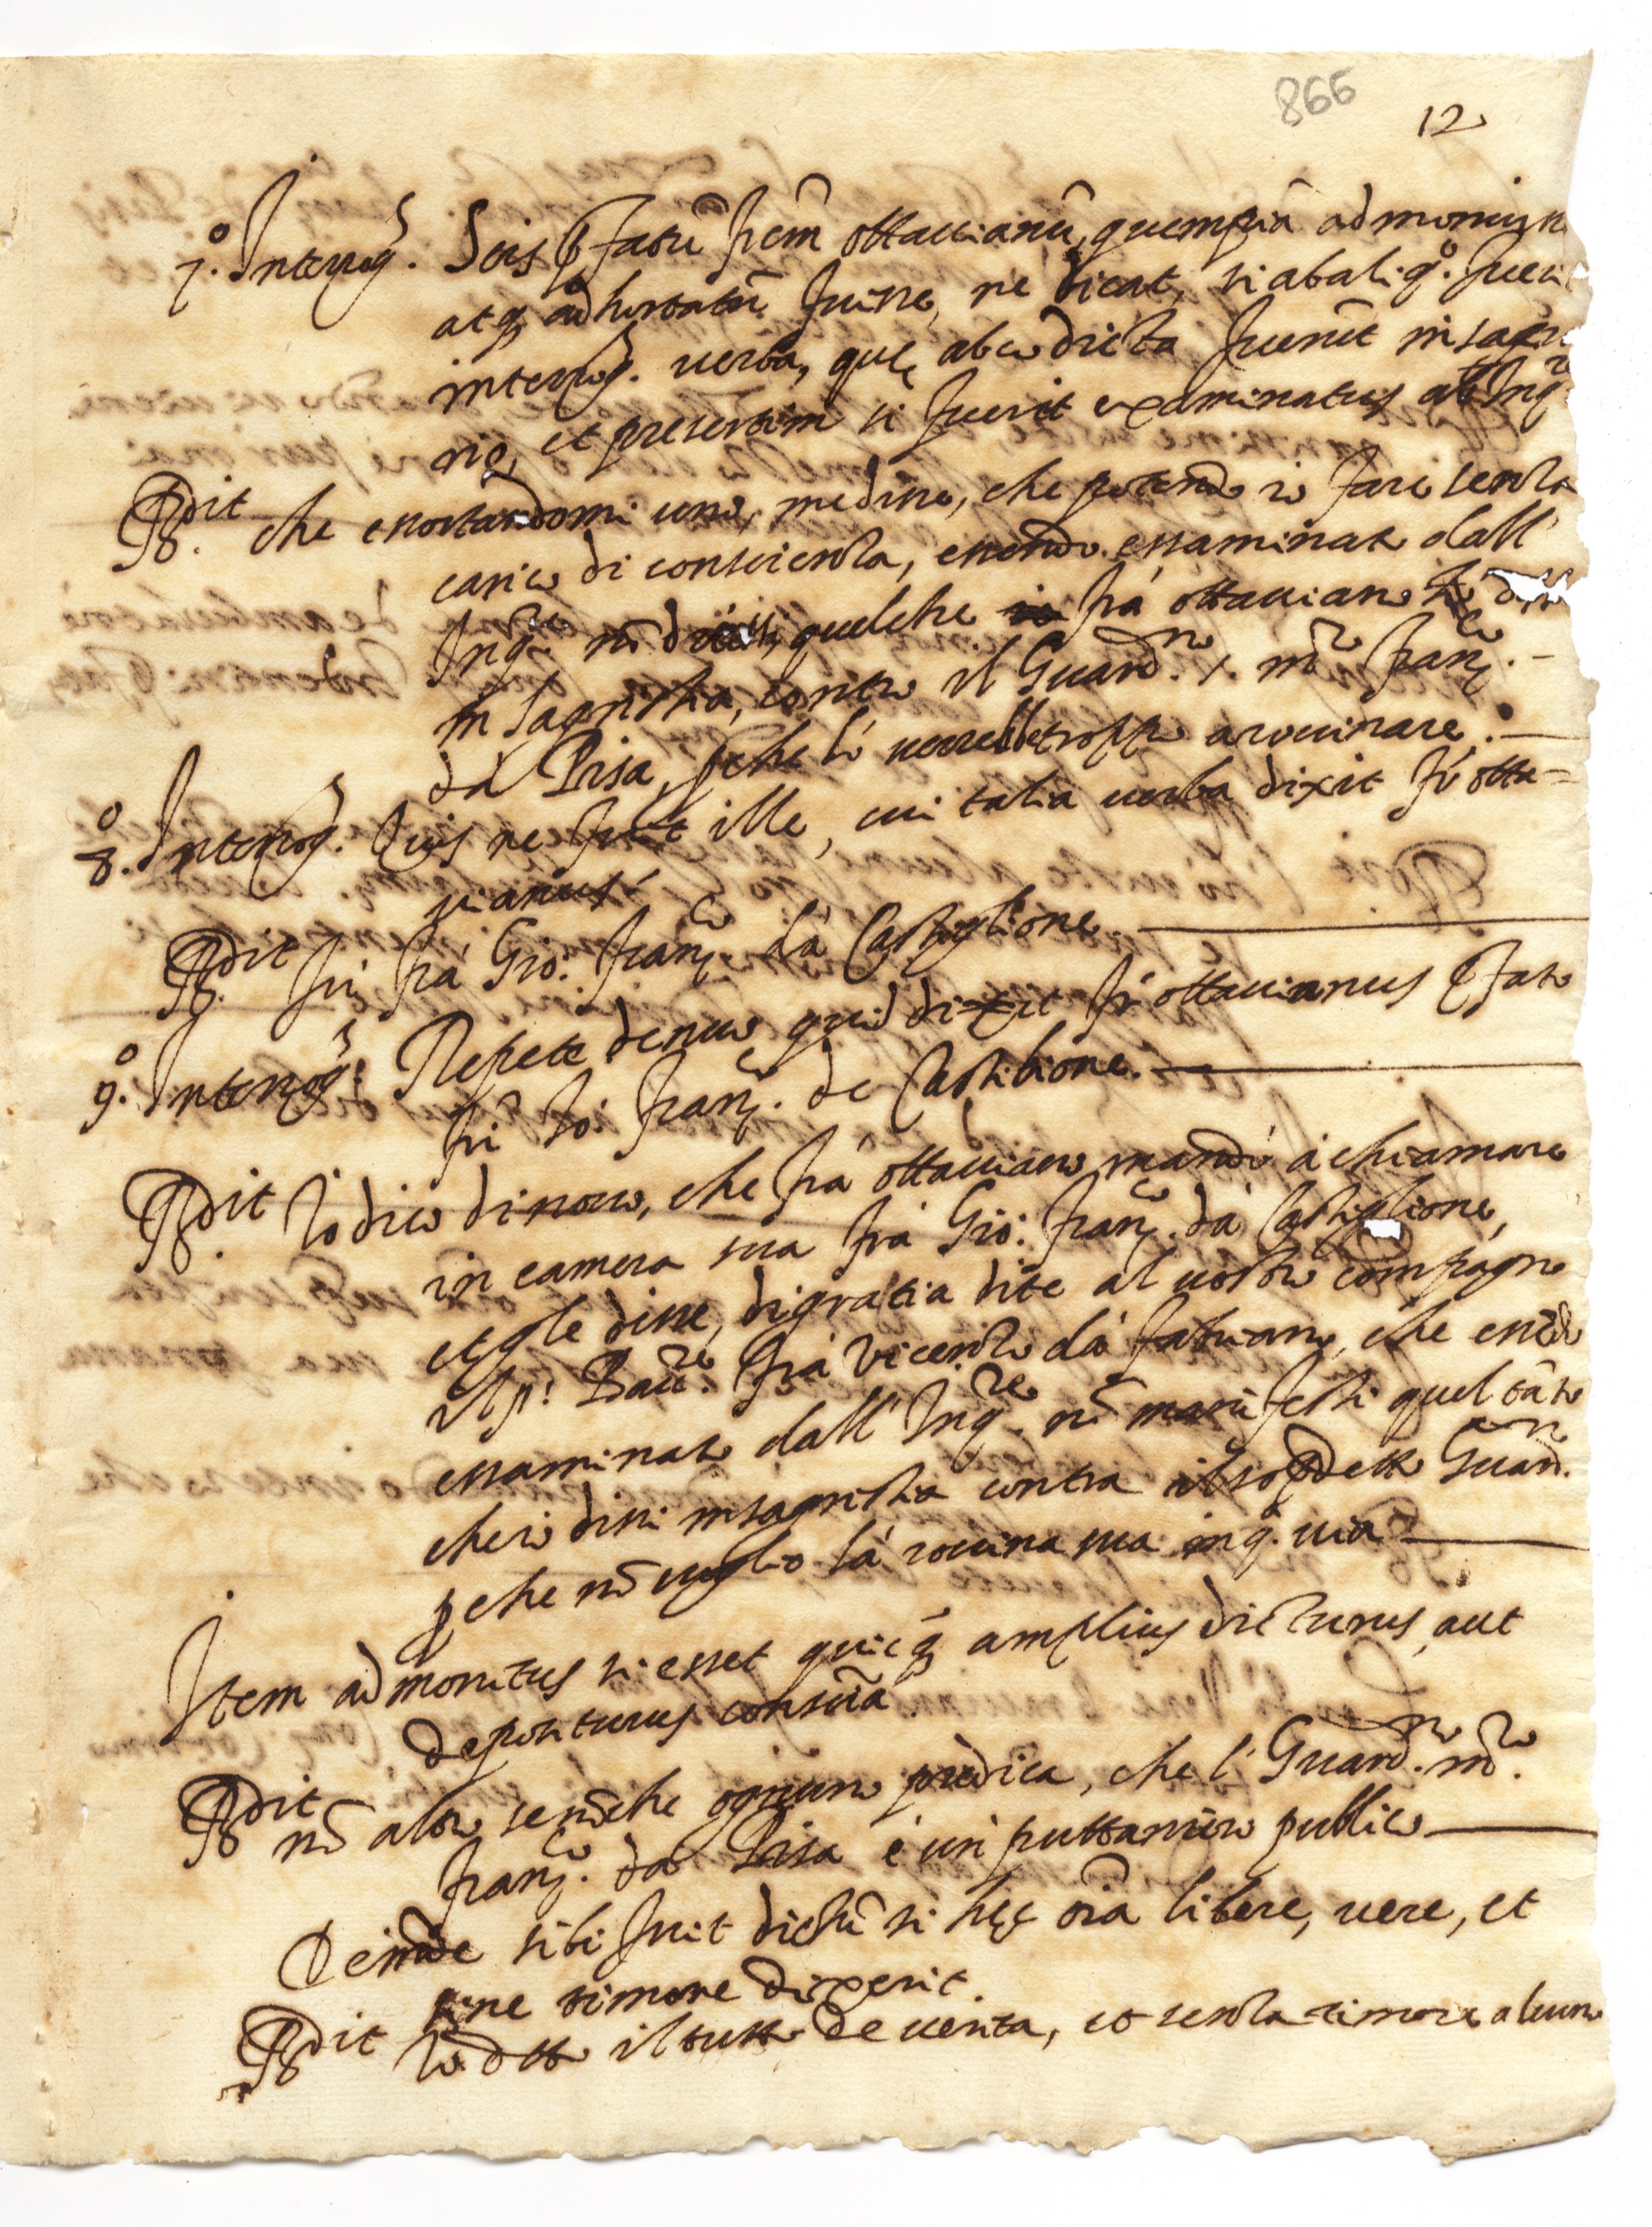 866
12
7.º Interrogˢ. Scis p̃fatũ frẽm ottauianũ, quempiã admonuiss
atq3 adhortatũ fuisse, ne dicat, si ab aliqº. fuerit
interrogˢ. uerba, quę ab eo dicta fuerũt in sacri
nio, et presertim si fuerit examinatus ab Inqʳᵉ
Rdit. che essortandomi uno, me disse, che potendo io fare senza
carico di conscienza, essendo essaminato dall'
Inqʳᵉ nõ dicessi quelche frá ottauiano há detto
in sagristia, contro il Guardⁿᵒ. mrõ Francᶜᵒ.
dá Pisa, pche li uerrebbe troppo a rouinare.
8.º Interrogˢ. Quis ne fuit ille, cui talia uerba dixit fr̃ otta=
uianus
Rdit. fú frá Gio: Francᶜᵒ. dá Castiglione.
9.º Interrogˢ. Repete denuo quid dixit fr̃ ottauianus p̃fato
fri Io: Francᶜᵒ. de Castilione.
Rdit. Io dico di nouo, che frá ottauiano mandò á chiamare
in camera sua frá Gio: Francᶜᵒ. dá Castiglione,
et gle disse, di gratia dite al uostro compagno
il p: Bacʳᵉ. frá Vicenzo dá Fabriano, che essẽdo
essaminato dall' Inqʳᵉ. nõ manifesti quel tãto
che io dissi in sagristia contra il sopᵈetto Guardⁿᵒ.
pche nõ uoglio lá rouina sua in qª. uia
Item admonitus si esset quicq̃ amplius dicturus, aut
depositurus conscĩa
Rdit nõ altro senõ che ogniuno predica, che l' Guardⁿᵒ. mrõ.
Francᶜᵒ. da Pisa é un' puttaniero publico
Deinde sibi fuit dictũ si hęc oĩa libere, uere, et
sine timore dixerit.
Rdit hò detto il tutto de uerita, et senza timore alcuno